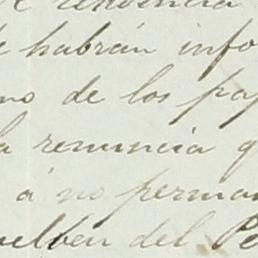 habrán info
no de los pap
la renuncia q
á no perma
uelben del Pe